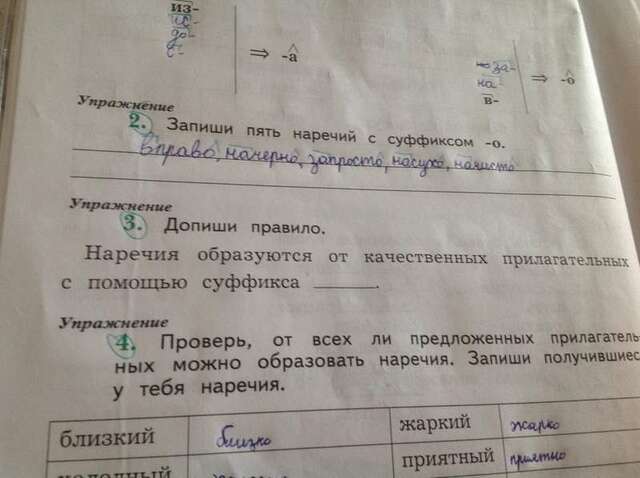 из-
до-
с-
⇒ -а
за-
на-
в-
⇒ -о
Упражнение
2. Запиши пять наречий с суффиксом -о.
вправо, начерно, запросто, насухо, начисто
Упражнение
3. Допиши правило.
Наречия образуются от качественных прилагательных
с помощью суффикса ______.
Упражнение
4. Проверь, от всех ли предложенных прилагатель-
ных можно образовать наречия. Запиши получившиес
у тебя наречия.
близкий близко жаркий жарко
приятный приятно